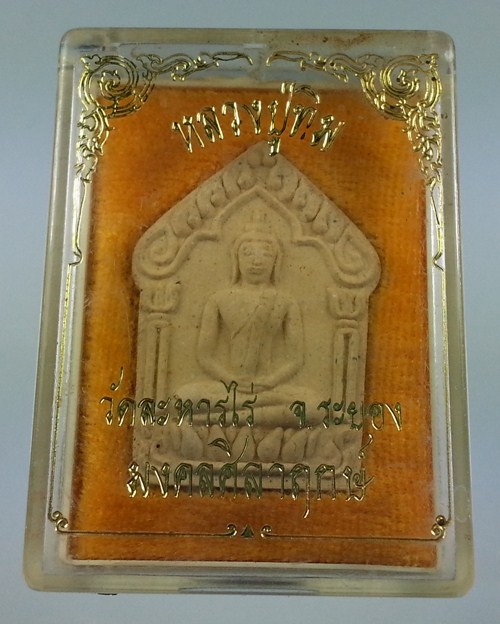 หลวงปู่ทิม
วัดละหารไร่ จ.ระยอง
มงคลศิลาฤกษ์